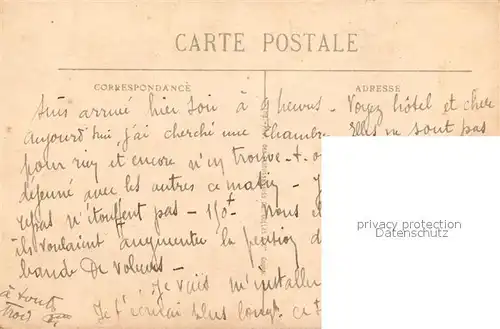 CARTE POSTALE
CORRESPONDANCE
ADRESSE
Suis arrivé hier soir à 9 heures - Voyez hôtel et chere
aujourd'hui j'ai cherché une chambre Elles ne sont pas
pour rien et encore n'en trouve-t-o
déjeuné avec les autres ce matin - J
repas n'étouffent pas - Nous
ils voulaient augmenter la pension d
bande De voleurs -
Je vais m'installer
Je t'écrirai plus longt. ce
à vous
trois
privacy protection
Datenschutz